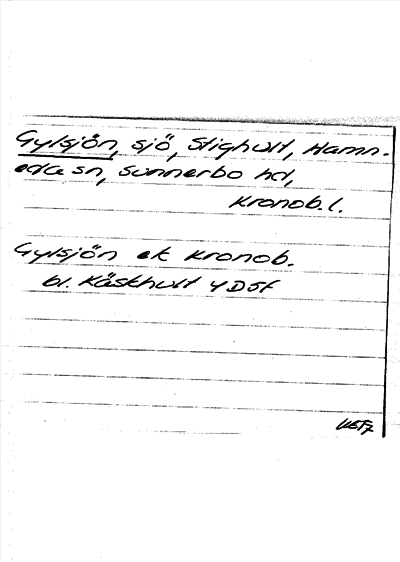 Gylsjön, sjö, Stighult, Hamn-
eda sn, Sunnerbo hd,
Kronob. l.
Gylsjön ek Kronob.
bl. Käskhult 4D5f